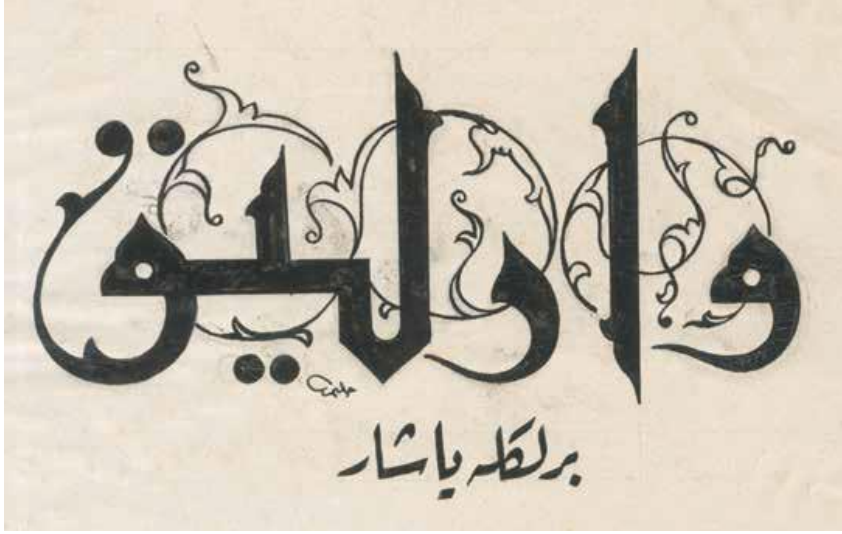 وارليق
برلكله ياشار